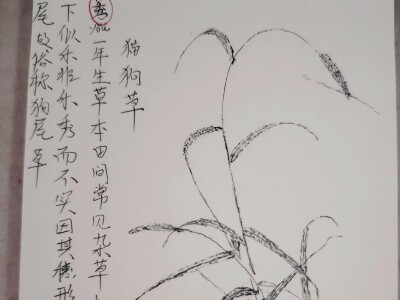 猫狗草
一年生草本田间常见杂草
下似禾非禾秀而不实因其穗形
尾故俗称狗尾草